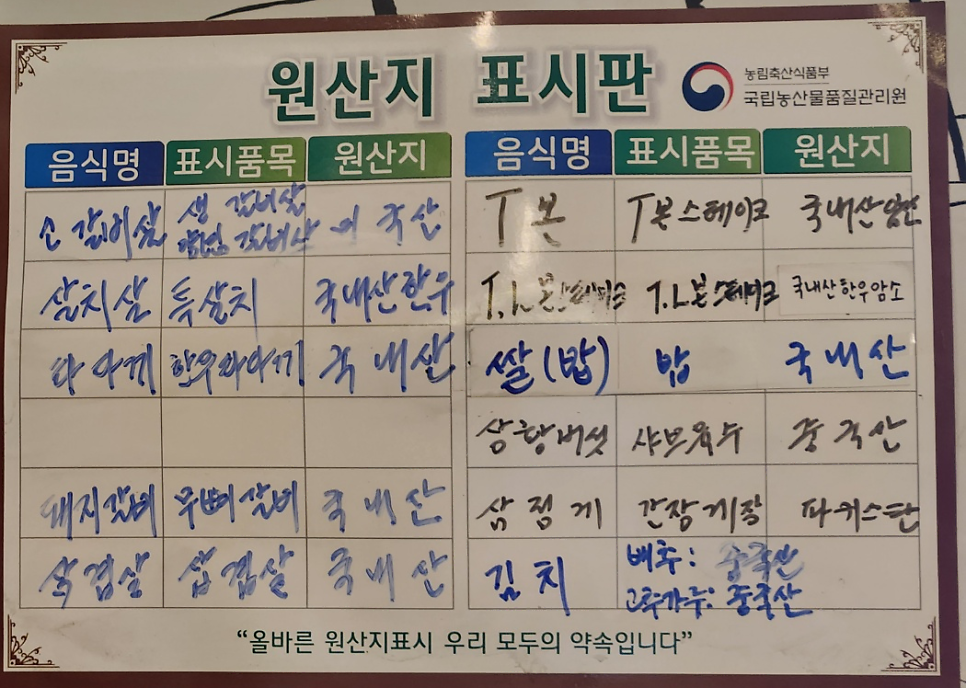 원산지 표시판
농림축산식품부
국립농산물품질관리원
음식명 표시품목 원산지
소갈비살 생 갈비살 미국산
양념 갈비살
살치살 특살치 국내산한우
타다끼 한우타다끼 국내산
돼지갈비 무뼈갈비 국내산
삼겹살 삼겹살 국내산
음식명 표시품목 원산지
T본 T본스테이크 국내산
T.L본스테이크 T.L본스테이크 국내산한우암소
쌀(밥) 밥 국내산
상황버섯 샤브육수 중국산
삼점게 간장게장 파키스탄
김치 배추: 중국산
고추가루: 중국산
"올바른 원산지표시 우리 모두의 약속입니다"